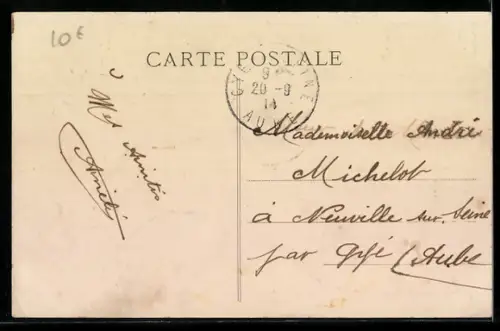 10€
CARTE POSTALE
9
20-9
14
AUBE
Mes Amitiés
Mademoiselle André
Michelot
à Neuville sur Seine
par Gyé (Aube